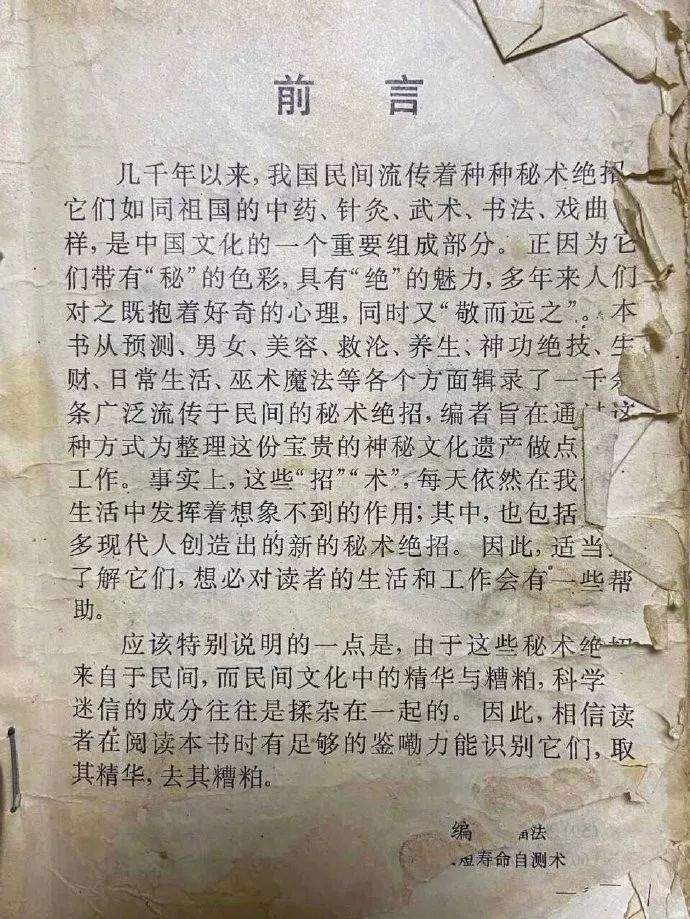 前 言
几千年以来，我国民间流传着种种秘术绝招
它们如同祖国的中药、针灸、武术、书法、戏曲
样，是中国文化的一个重要组成部分。正因为它
们带有“秘”的色彩，具有“绝”的魅力，多年来人们
对之既抱着好奇的心理，同时又“敬而远之”。本
书从预测、男女、美容、救沦、养生、神功绝技、生
财、日常生活、巫术魔法等各个方面辑录了一千余
条广泛流传于民间的秘术绝招，编者旨在通过这
种方式为整理这份宝贵的神秘文化遗产做点
工作。事实上，这些“招”“术”，每天依然在我
生活中发挥着想象不到的作用；其中，也包括
多现代人创造出的新的秘术绝招。因此，适当
了解它们，想必对读者的生活和工作会有一些帮
助。
应该特别说明的一点是，由于这些秘术绝招
来自于民间，而民间文化中的精华与糟粕，科学
迷信的成分往往是揉杂在一起的。因此，相信读
者在阅读本书时有足够的鉴嘞力能识别它们，取
其精华，去其糟粕。
编 法
寿命自测术